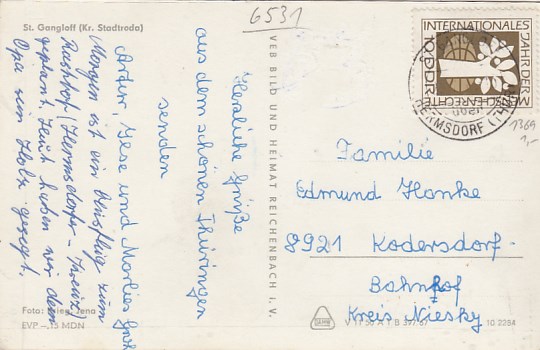 St. Gangloff (Kr. Stadtroda)
6531
Herzliche Grüße
aus dem schönen Thüringen
senden
Artur, Gese und Marlies
Morgen ist ein Ausflug zum
Rasthof (Hermsdorfer-Kreuz)
geplant. Heut haben wir dem
Opa sein Holz gesägt.
Foto: Krieg, Jena
EVP —,15 MDN
VEB BILD UND HEIMAT REICHENBACH I. V.
INTERNATIONALES
JAHR DER
MENSCHENRECHTE
10 DDR
HERMSDORF (THÜR)
1369
1,-
Familie
Edmund Hanke
8921 Kodersdorf-
Bahnhof
Kreis Niesky
10 2254